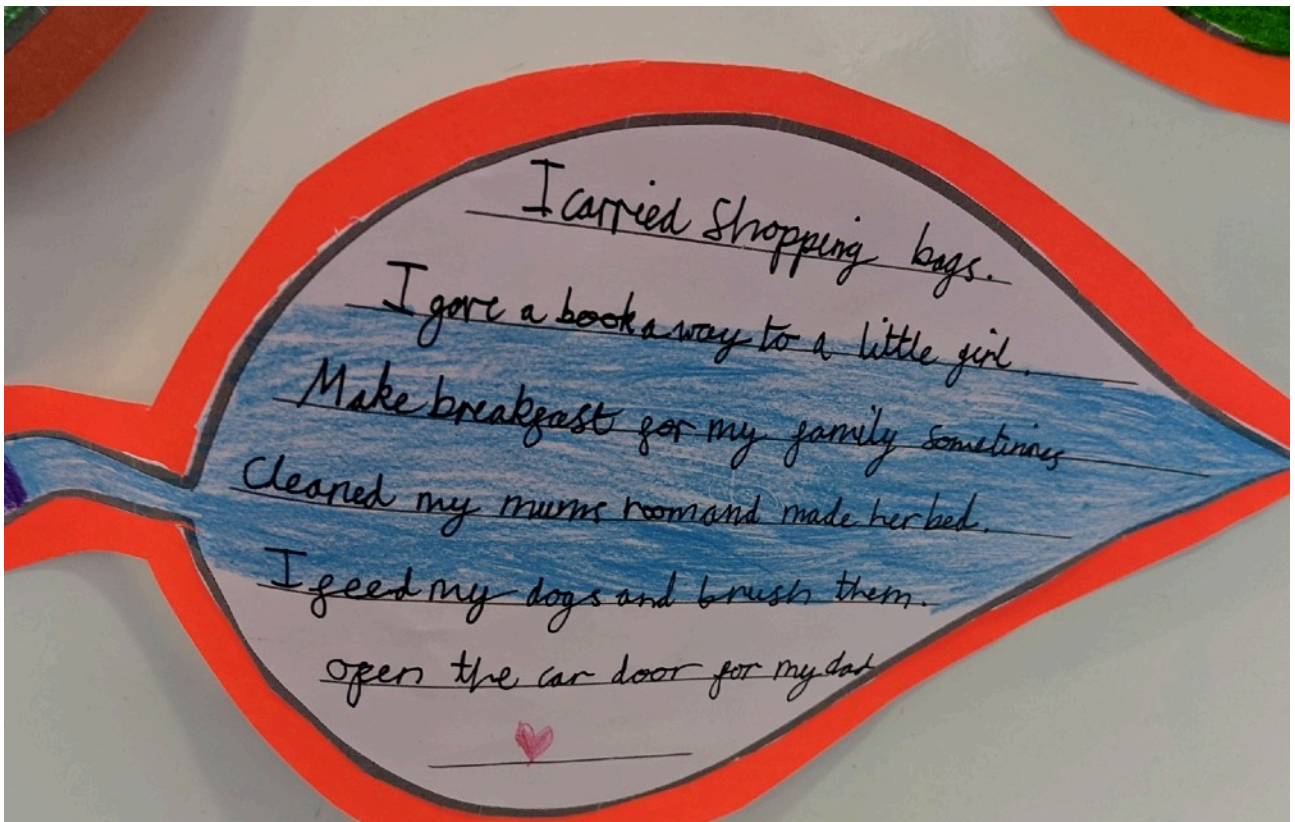 I carried Shopping bags.
I gave a book away to a little girl.
Make breakfast for my family sometimes
Cleaned my mums room and made her bed.
I feed my dogs and brush them.
open the car door for my dad